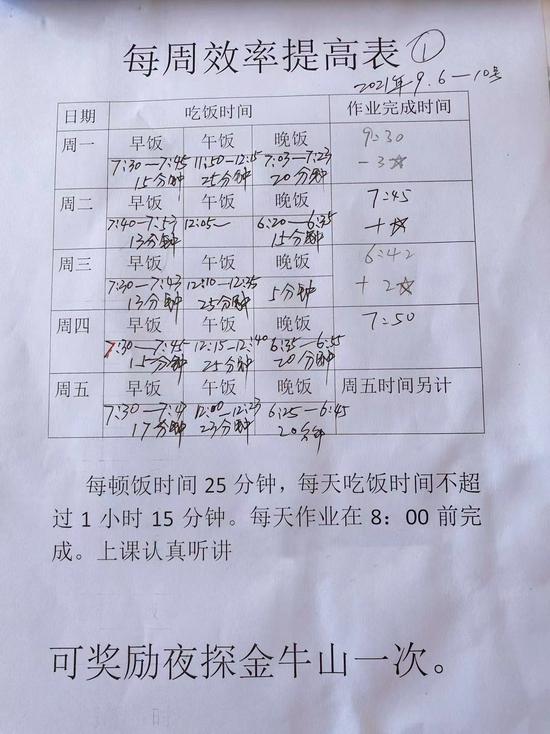 每周效率提高表 ①
2021年9.6—10号
日期 吃饭时间 作业完成时间
周一 早饭 午饭 晚饭 9:30
7:30—7:45 11:50—12:15 7:03—7:23 -3☆
15分钟 25分钟 20分钟
周二 早饭 午饭 晚饭 7:45
7:40—7:53 12:05— 6:20—6:35 +☆
13分钟 15分钟
周三 早饭 午饭 晚饭 6:42
7:30—7:43 12:10—12:35 5分钟 +2☆
13分钟 25分钟
周四 早饭 午饭 晚饭 7:50
7:30—7:45 12:15—12:40 6:35—6:55
15分钟 25分钟 20分钟
周五 早饭 午饭 晚饭 周五时间另计
7:30—7:47 12:00—12:23 6:25—6:45
17分钟 23分钟 20分钟
每顿饭时间 25 分钟，每天吃饭时间不超
过 1 小时 15 分钟。每天作业在 8：00 前完
成。上课认真听讲
可奖励夜探金牛山一次。